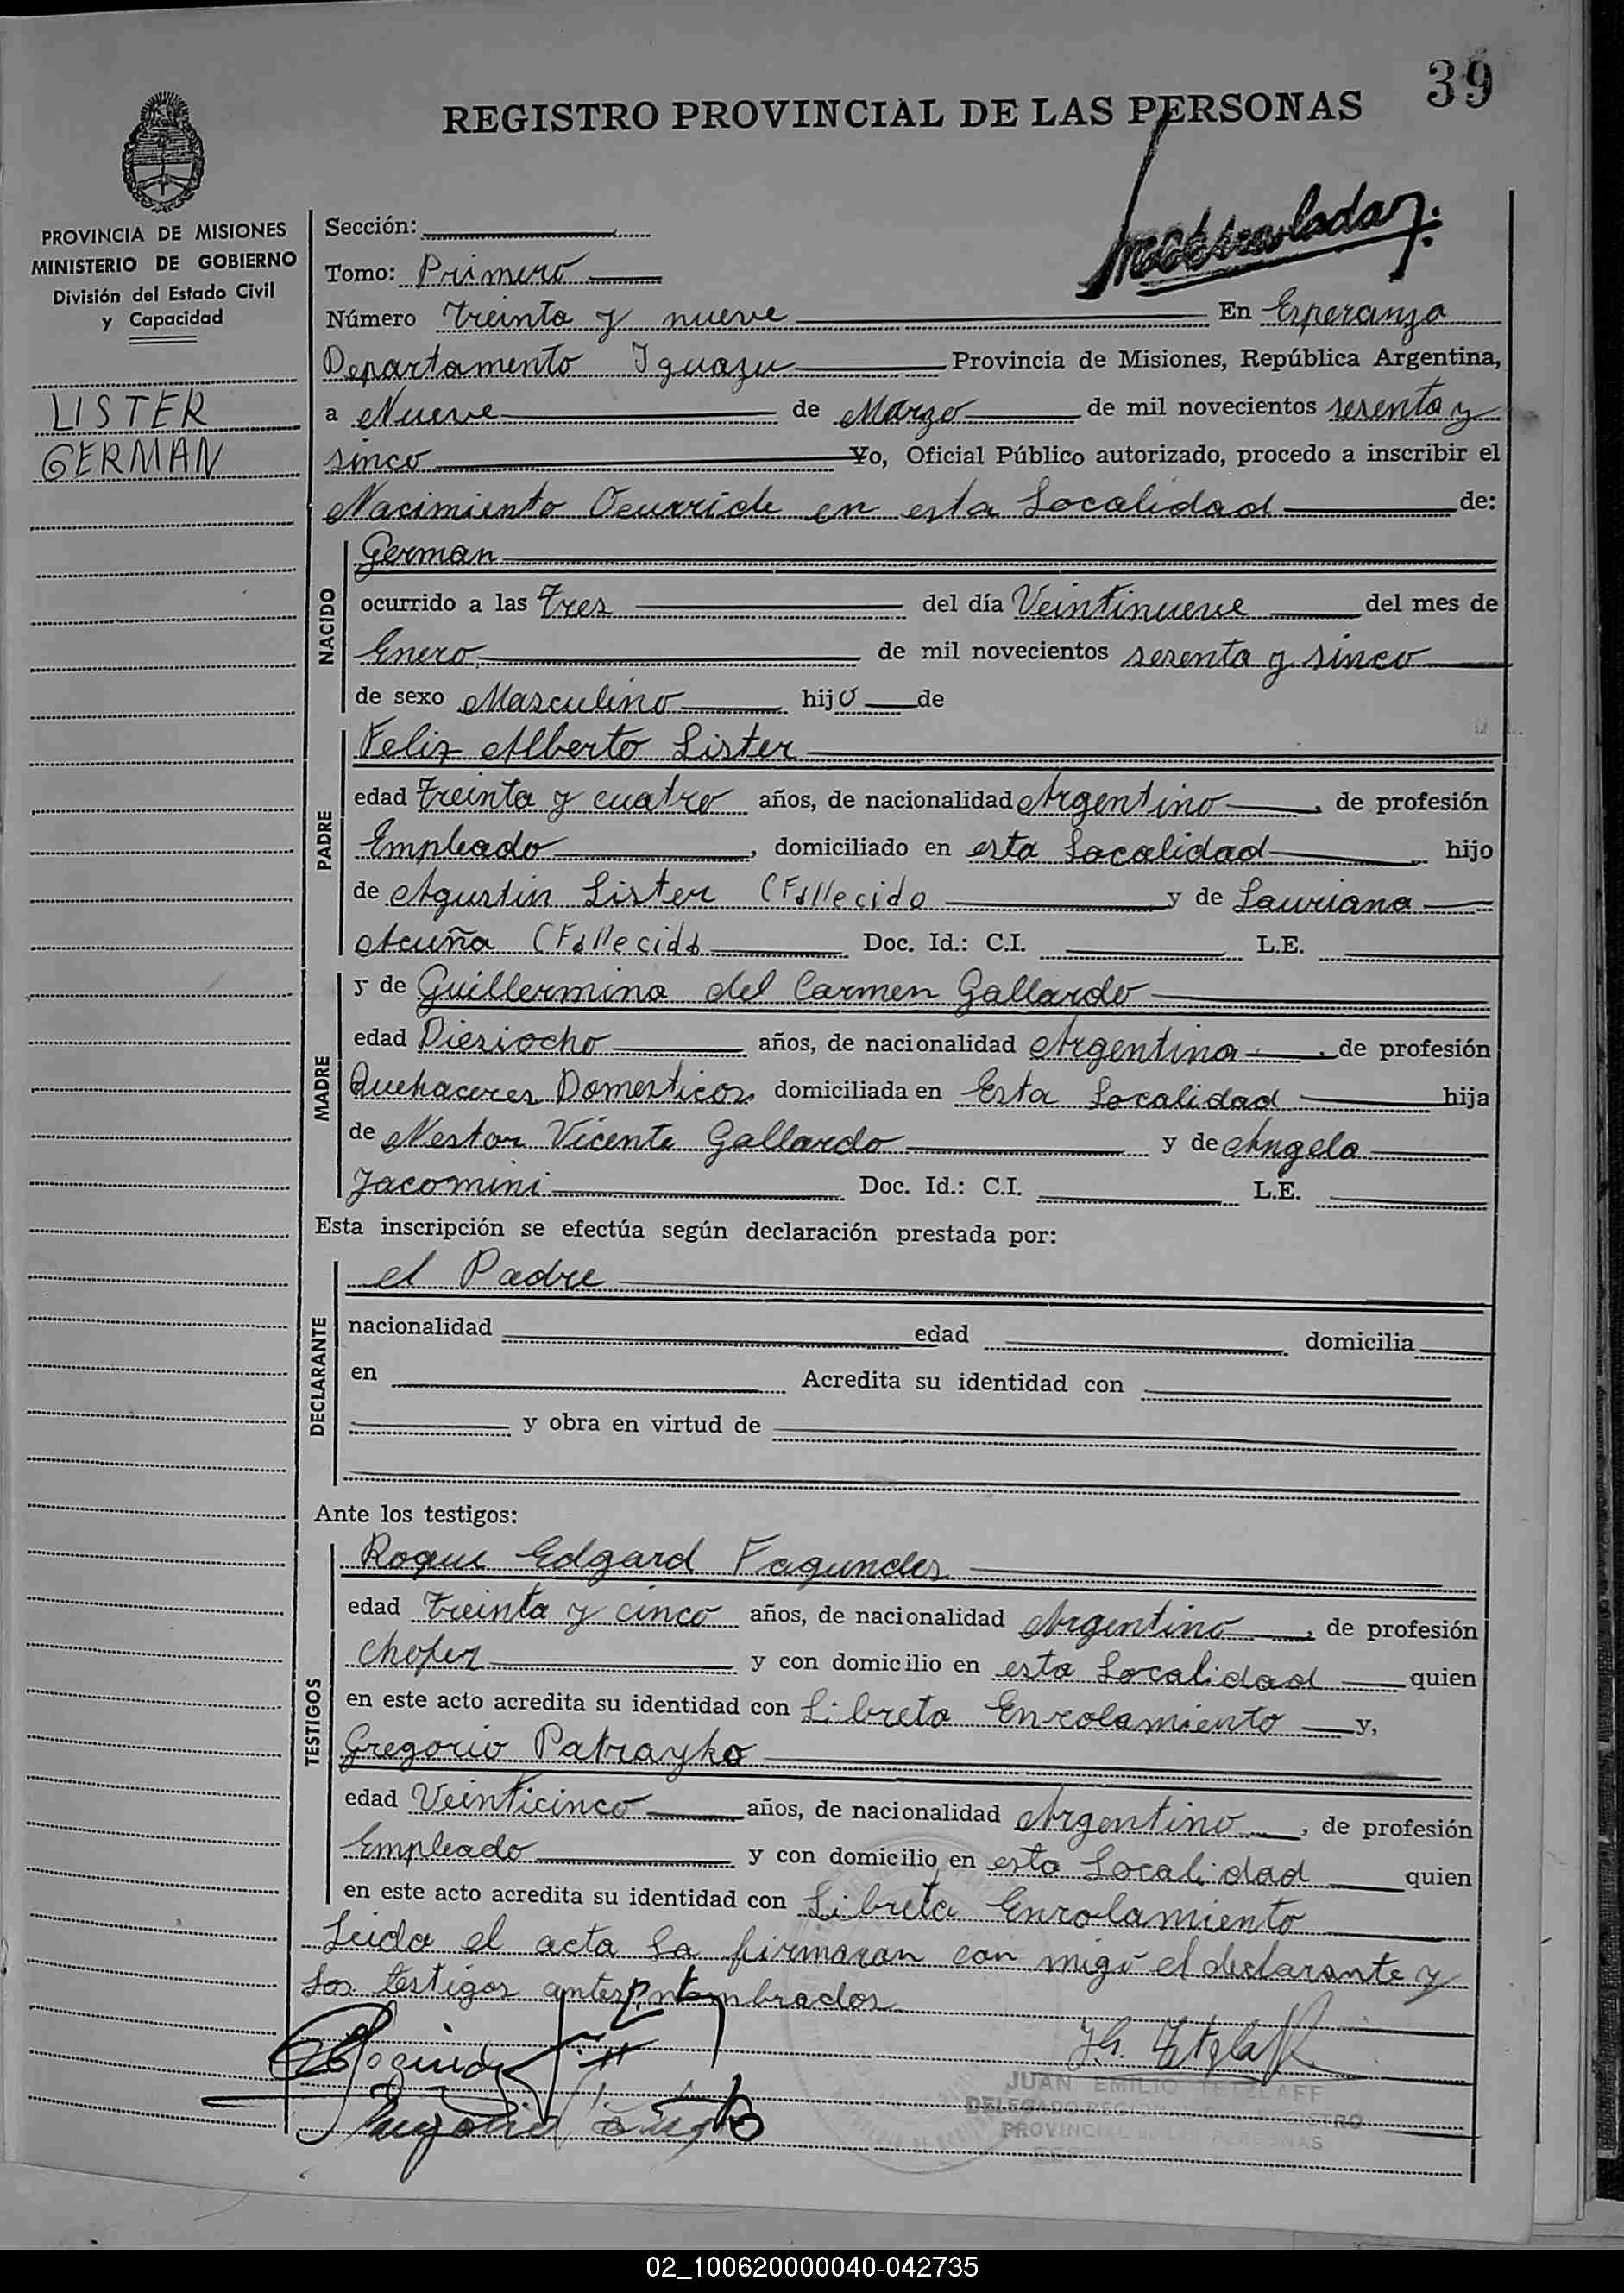 39
REGISTRO PROVINCIAL DE LAS PERSONAS
PROVINCIA DE MISIONES
MINISTERIO DE GOBIERNO
División del Estado Civil
y Capacidad
LISTER
GERMAN
Sección:
Tomo: Primero
Número treinta y nueve En Esperanza
Departamento Iguazu Provincia de Misiones, República Argentina,
a Nueve de Marzo de mil novecientos sesenta y
sinco Yo, Oficial Público autorizado, procedo a inscribir el
Nacimiento Ocurrido en esta Localidad de:
NACIDO
German
ocurrido a las tres del día Veintinueve del mes de
Enero de mil novecientos sesenta y sinco
de sexo Masculino hijo de
PADRE
Feliz Alberto Lister
edad treinta y cuatro años, de nacionalidad Argentino, de profesión
Empleado, domiciliado en esta Localidad hijo
de Agustin Lister (Fallecido y de Lauriana
Acuña (Fallecida Doc. Id.: C.I. L.E.
MADRE
y de Guillermina del Carmen Gallardo
edad Diesiocho años, de nacionalidad Argentina, de profesión
Quehaceres Domesticos domiciliada en Esta Localidad hija
de Nestor Vicente Gallardo y de Angela
Jacomini Doc. Id.: C.I. L.E.
Esta inscripción se efectúa según declaración prestada por:
DECLARANTE
el Padre
nacionalidad edad domicilia
en Acredita su identidad con
y obra en virtud de
Ante los testigos:
TESTIGOS
Roque Edgard Fagundes
edad treinta y cinco años, de nacionalidad Argentino, de profesión
chofer y con domicilio en esta Localidad quien
en este acto acredita su identidad con Libreta Enrolamiento y,
Gregorio Patrayko
edad Veinticinco años, de nacionalidad Argentino, de profesión
Empleado y con domicilio en esta Localidad quien
en este acto acredita su identidad con Libreta Enrolamiento
Leida el acta la firmaran con migo el declarante y
los testigos antes nombrados
JUAN EMILIO TETZLAFF
DELEGADO REGIONAL DEL REGISTRO
PROVINCIAL DE LAS PERSONAS
02_100620000040-042735